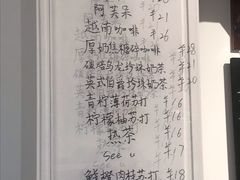 阿芙呆 ¥21
越南咖啡 ¥26
厚奶焦糖碎咖啡 ¥28
乌龙珍珠奶茶 ¥21
英式伯爵珍珠奶茶 ¥20
青柠薄荷苏打 ¥16
柠檬柚苏打 ¥16
热茶 ¥16
see u ¥17
鲜橙肉桂苏打 ¥18